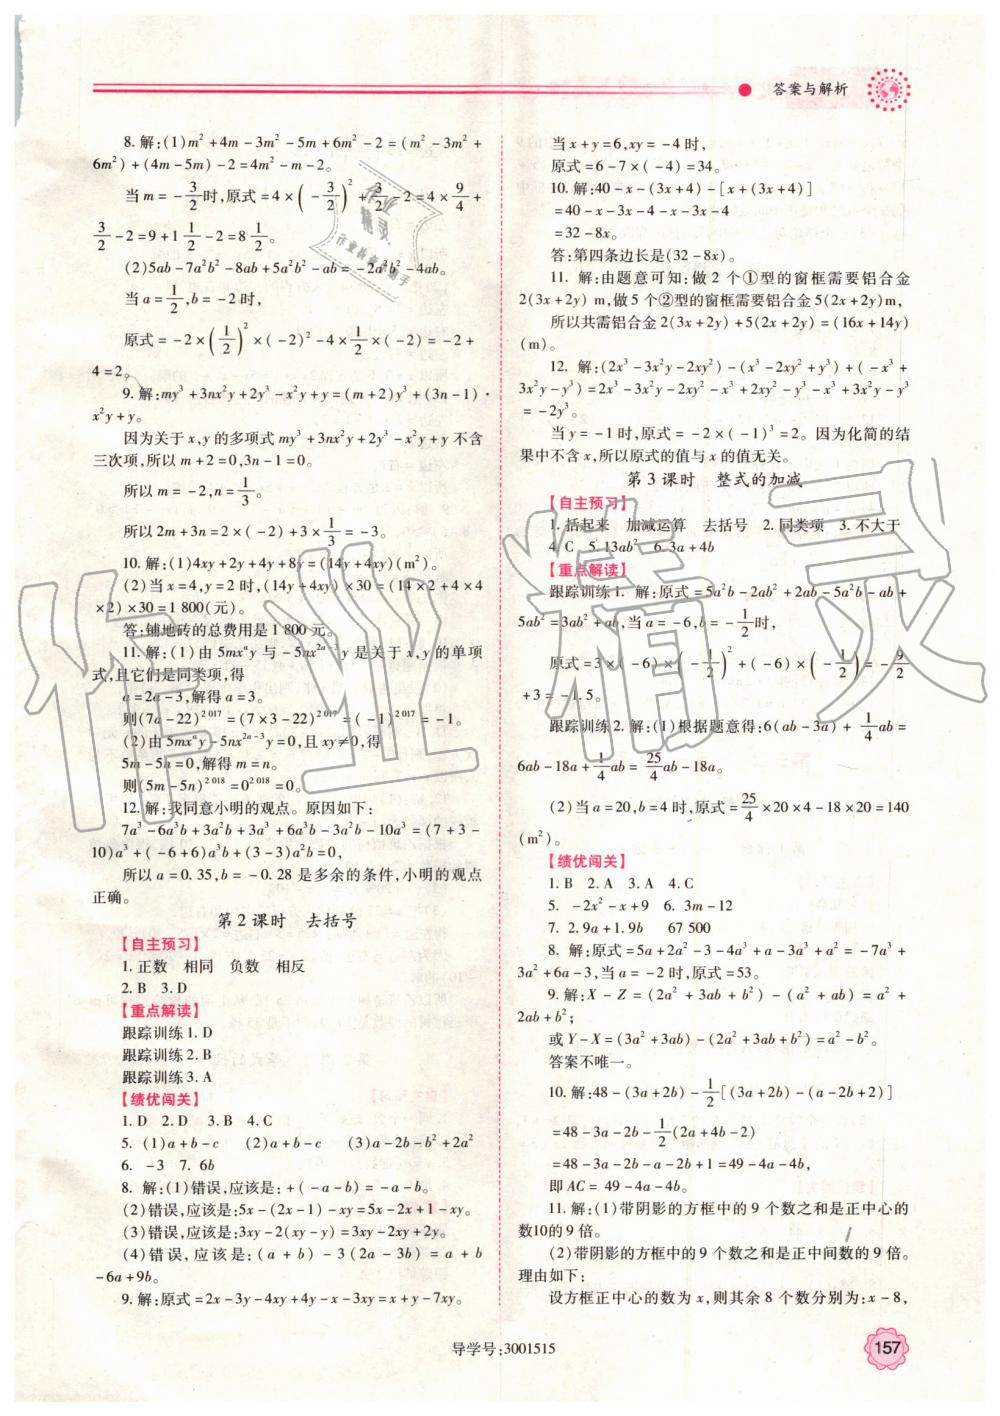 答案与解析
8. 解:(1)m²+4m-3m²-5m+6m²-2=(m²-3m²+
6m²)+(4m-5m)-2=4m²-m-2。
当 m=-3/2时,原式=4×(-3/2)²+3/2-2=4×9/4+
3/2-2=9+1 1/2-2=8 1/2。
(2)5ab-7a²b²-8ab+5a²b²-ab=-2a²b²-4ab。
当 a=1/2,b=-2 时,
原式=-2×(1/2)²×(-2)²-4×1/2×(-2)=-2+
4=2。
9. 解:my³+3nx²y+2y³-x²y+y=(m+2)y³+(3n-1)·
x²y+y。
因为关于 x,y 的多项式 my³+3nx²y+2y³-x²y+y 不含
三次项,所以 m+2=0,3n-1=0。
所以 m=-2,n=1/3。
所以 2m+3n=2×(-2)+3×1/3=-3。
10. 解:(1)4xy+2y+4y+8y=(14y+4xy)(m²)。
(2)当 x=4,y=2 时,(14y+4xy)×30=(14×2+4×4
×2)×30=1 800(元)。
答:铺地砖的总费用是 1 800 元。
11. 解:(1)由 5mxᵃy 与-5nx²ᵃ⁻³y 是关于 x,y 的单项
式,且它们是同类项,得
a=2a-3,解得 a=3。
则(7a-22)²⁰¹⁷=(7×3-22)²⁰¹⁷=(-1)²⁰¹⁷=-1。
(2)由 5mxᵃy-5nx²ᵃ⁻³y=0,且 xy≠0,得
5m-5n=0,解得 m=n。
则(5m-5n)²⁰¹⁸=0²⁰¹⁸=0。
12. 解:我同意小明的观点。原因如下:
7a³-6a³b+3a²b+3a³+6a³b-3a²b-10a³=(7+3-
10)a³+(-6+6)a³b+(3-3)a²b=0,
所以 a=0.35,b=-0.28 是多余的条件,小明的观点
正确。
第 2 课时 去括号
【自主预习】
1. 正数 相同 负数 相反
2. B 3. D
【重点解读】
跟踪训练 1. D
跟踪训练 2. B
跟踪训练 3. A
【绩优闯关】
1. D 2. D 3. B 4. C
5. (1)a+b-c (2)a+b-c (3)a-2b-b²+2a²
6. -3 7. 6b
8. 解:(1)错误,应该是:+(-a-b)=-a-b。
(2)错误,应该是:5x-(2x-1)-xy=5x-2x+1-xy。
(3)错误,应该是:3xy-2(xy-y)=3xy-2xy+2y。
(4)错误,应该是:(a+b)-3(2a-3b)=a+b
-6a+9b。
9. 解:原式=2x-3y-4xy+4y-x-3xy=x+y-7xy。
当 x+y=6,xy=-4 时,
原式=6-7×(-4)=34。
10. 解:40-x-(3x+4)-[x+(3x+4)]
=40-x-3x-4-x-3x-4
=32-8x。
答:第四条边长是(32-8x)。
11. 解:由题意可知:做 2 个①型的窗框需要铝合金
2(3x+2y) m,做 5 个②型的窗框需要铝合金 5(2x+2y)m,
所以共需铝合金 2(3x+2y)+5(2x+2y)=(16x+14y)
(m)。
12. 解:(2x³-3x²y-2xy²)-(x³-2xy²+y³)+(-x³+
3x²y-y³)=2x³-3x²y-2xy²-x³+2xy²-y³-x³+3x²y-y³
=-2y³。
当 y=-1 时,原式=-2×(-1)³=2。因为化简的结
果中不含 x,所以原式的值与 x 的值无关。
第 3 课时 整式的加减
【自主预习】
1. 括起来 加减运算 去括号 2. 同类项 3. 不大于
4. C 5. 13ab² 6. 3a+4b
【重点解读】
跟踪训练 1. 解:原式=5a²b-2ab²+2ab-5a²b-ab+
5ab²=3ab²+ab,当 a=-6,b=-1/2时,
原式=3×(-6)×(-1/2)²+(-6)×(-1/2)=-9/2
+3=-1.5。
跟踪训练 2. 解:(1)根据题意得:6(ab-3a)+1/4ab=
6ab-18a+1/4ab=25/4ab-18a。
(2)当 a=20,b=4 时,原式=25/4×20×4-18×20=140
(m²)。
【绩优闯关】
1. B 2. A 3. A 4. C
5. -2x²-x+9 6. 3m-12
7. 2.9a+1.9b 67 500
8. 解:原式=5a+2a²-3-4a³+a-3a³+a²=-7a³+
3a²+6a-3,当 a=-2 时,原式=53。
9. 解:X-Z=(2a²+3ab+b²)-(a²+ab)=a²+
2ab+b²;
或 Y-X=(3a²+3ab)-(2a²+3ab+b²)=a²-b²。
答案不唯一。
10. 解:48-(3a+2b)-1/2[(3a+2b)-(a-2b+2)]
=48-3a-2b-1/2(2a+4b-2)
=48-3a-2b-a-2b+1=49-4a-4b,
即 AC=49-4a-4b。
11. 解:(1)带阴影的方框中的 9 个数之和是正中心的
数10的 9 倍。
(2)带阴影的方框中的 9 个数之和是正中间数的 9 倍。
理由如下:
设方框正中心的数为 x,则其余 8 个数分别为:x-8,
导学号:3001515
157
作业精灵